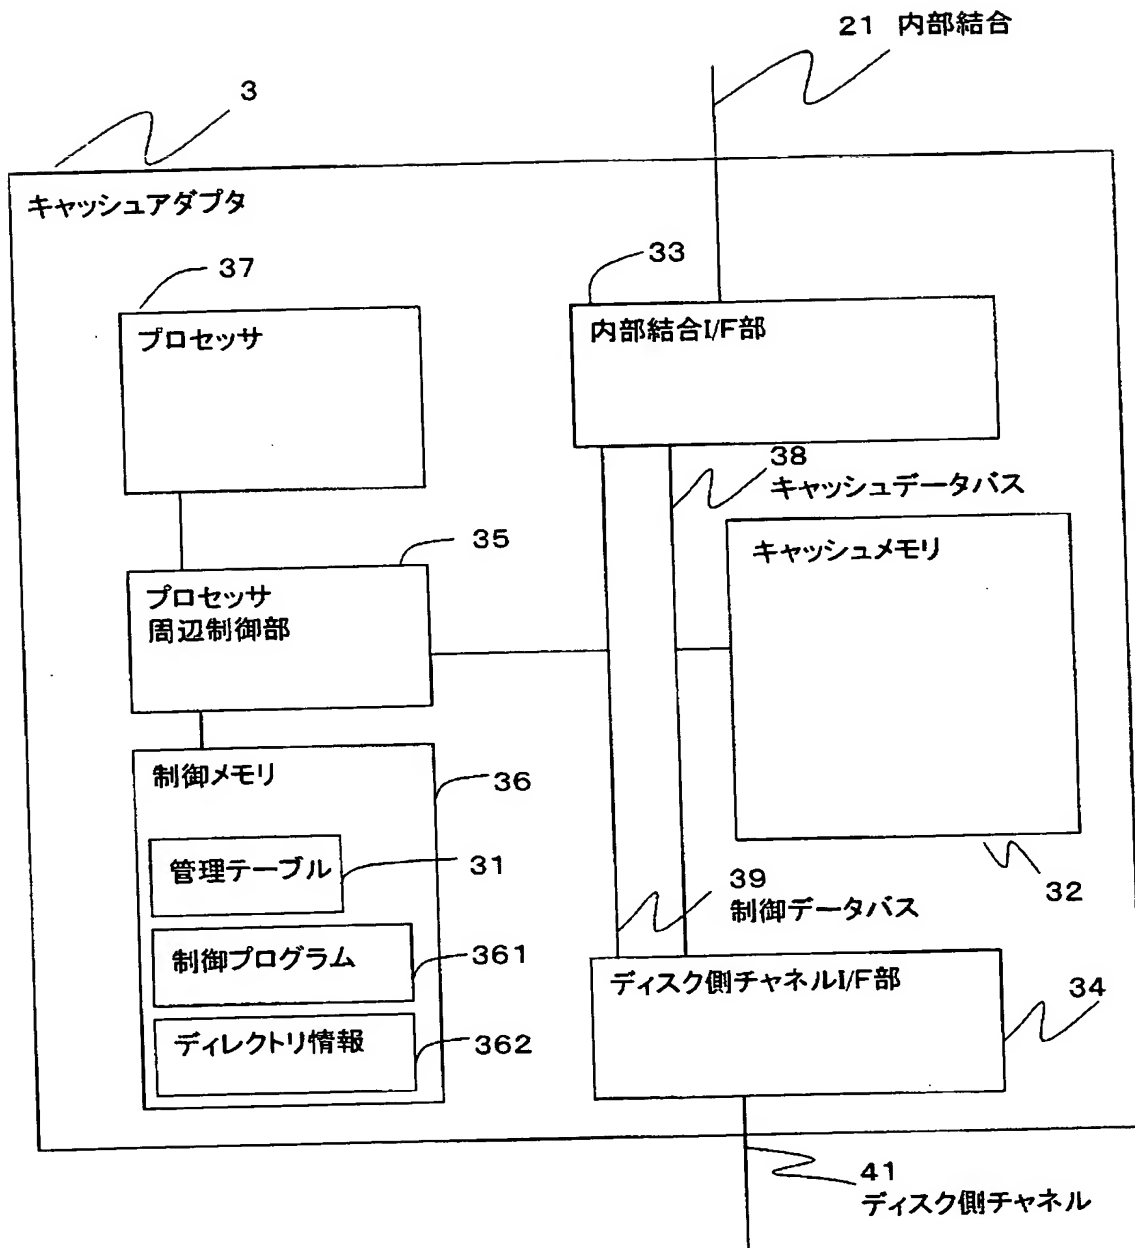 21 内部結合
3
キャッシュアダプタ
37
プロセッサ
33
内部結合I/F部
38
キャッシュデータバス
35
プロセッサ
周辺制御部
キャッシュメモリ
32
制御メモリ
36
管理テーブル
31
制御プログラム
361
ディレクトリ情報
362
39
制御データバス
ディスク側チャネルI/F部
34
41
ディスク側チャネル